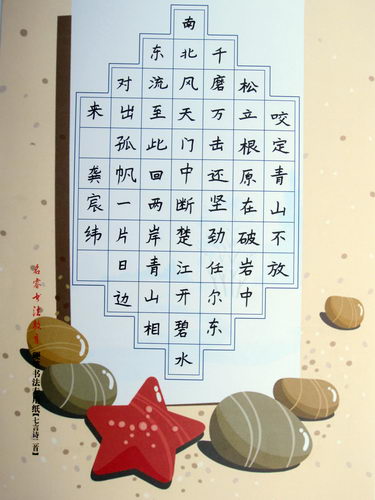 咬定青山不放
松立根原在破岩中
千磨万击还坚劲任尔东
南北风天门中断楚江开碧水
东流至此回两岸青山相
对出孤帆一片日边
来龚宸纬
书法教育
书法用纸【七言诗二首】